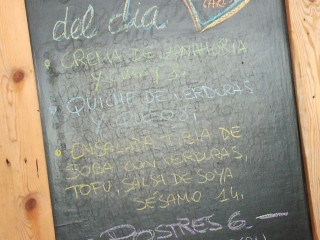 del día
• CREMA DE ZANAHORIA
Y
• QUICHE DE VERDURAS
Y
• ENSALADA TIBIA DE
SOBA CON VERDURAS,
TOFU, SALSA DE SOYA
SÉSAMO 14.
POSTRES 6.-